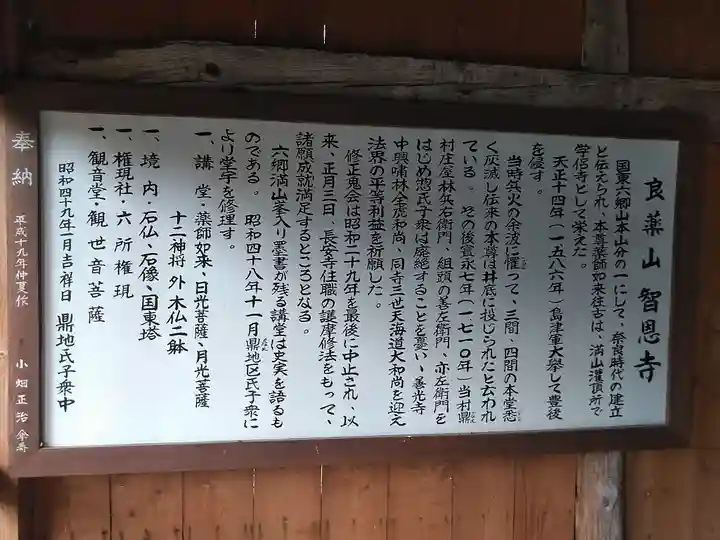 良薬山智恩寺
国東六郷山本山分の一にして、奈良時代の建立
と伝えられ、本尊薬師如来往古は、満山灌頂所で
学侶寺として栄えた。
天正十四年(一五八六年)島津軍大挙して豊後
を侵す。
当時兵火の余波に罹つて、三間、四間の本堂悉
く灰滅し伝来の本尊は井底に投じられたと云われ
ている。 その後宝永七年(一七一〇年)当村鼎
村庄屋林兵右衛門、組頭の善左衛門、亦左衛門を
はじめ惣氏子衆は廃絶することを憂い、善光寺
中興嘯林全虎和尚、同寺三世天海道大和尚を迎え
法界の平等利益を祈願した。
修正鬼会は昭和二十九年を最後に中止され、以
来、正月三日、長安寺住職の護摩修法をもって、
諸願成就満足するところとなる。
六郷満山峯入り墨書が残る講堂は史実を語るも
のである。 昭和四十八年十一月鼎地区氏子衆に
より堂宇を修理す。
一、講 堂・薬師如来、日光菩薩、月光菩薩
十二神将 外 木仏二躰
一、境 内・石仏、石像、国東塔
一、権現社・六所権現
一、観音堂・観世音菩薩
昭和四十九年一月吉祥日 鼎地氏子衆中
奉納 平成十九年仲夏作 小畑正治 傘寿